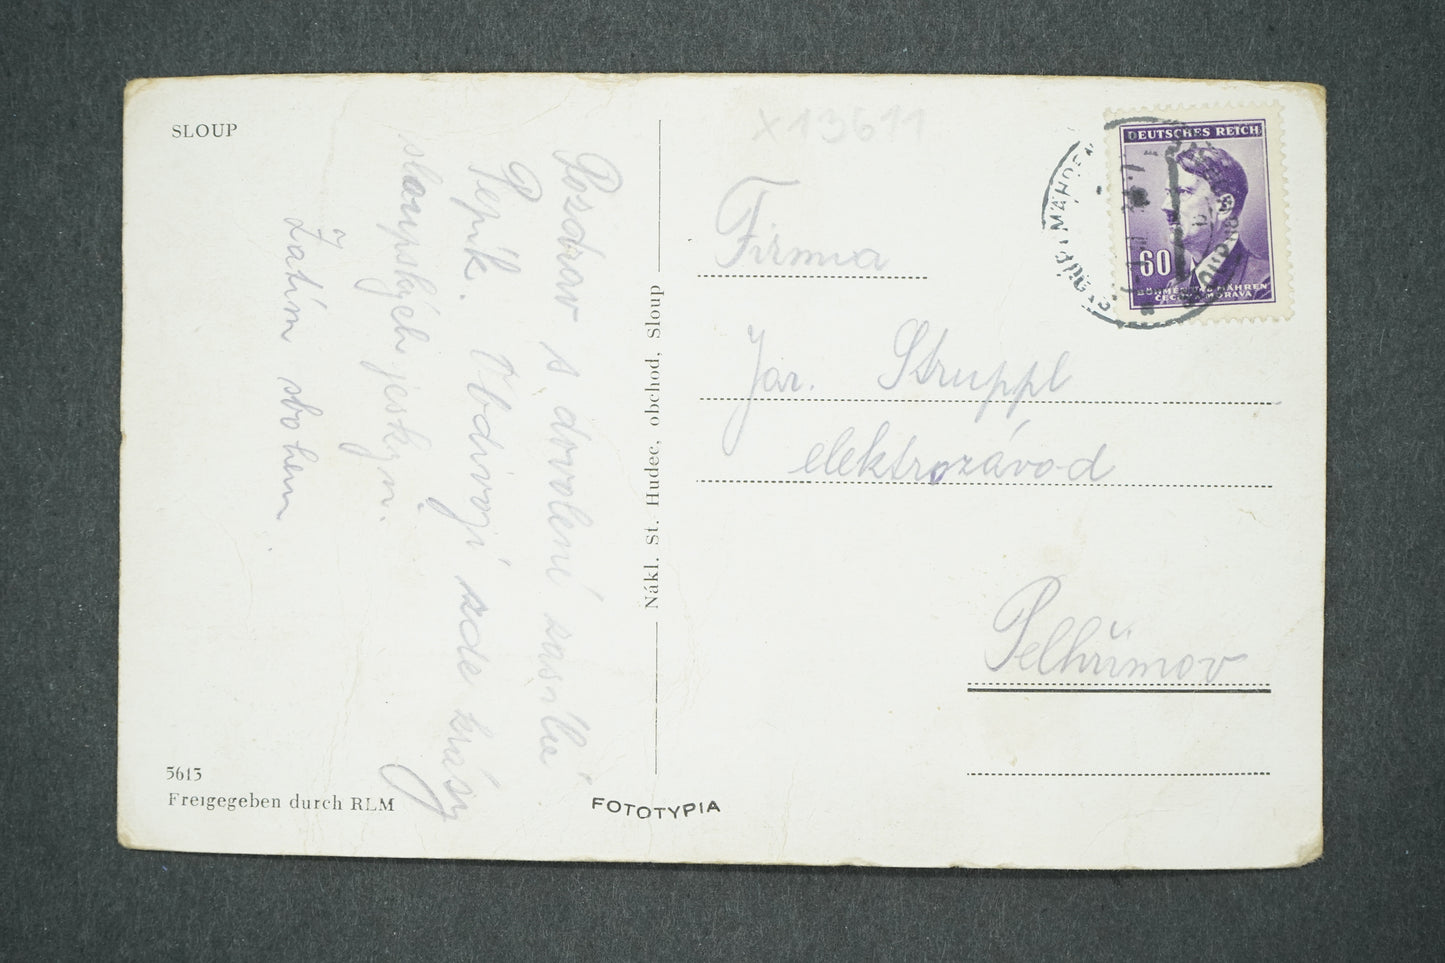 SLOUP
Pozdrav s dovolené zasílá
Pepík. Obdivuji zde krásy
sloupských jeskyn.
Zatím sbohem.
5613
Freigegeben durch RLM
Nákl. St. Hudec, obchod, Sloup
FOTOTYPIA
X13611
DEUTSCHES REICH
60
BÖHMEN U. MÄHREN
ČECHY A MORAVA
Firma
Jar. Struppl
elektrozávod
Pelhřimov